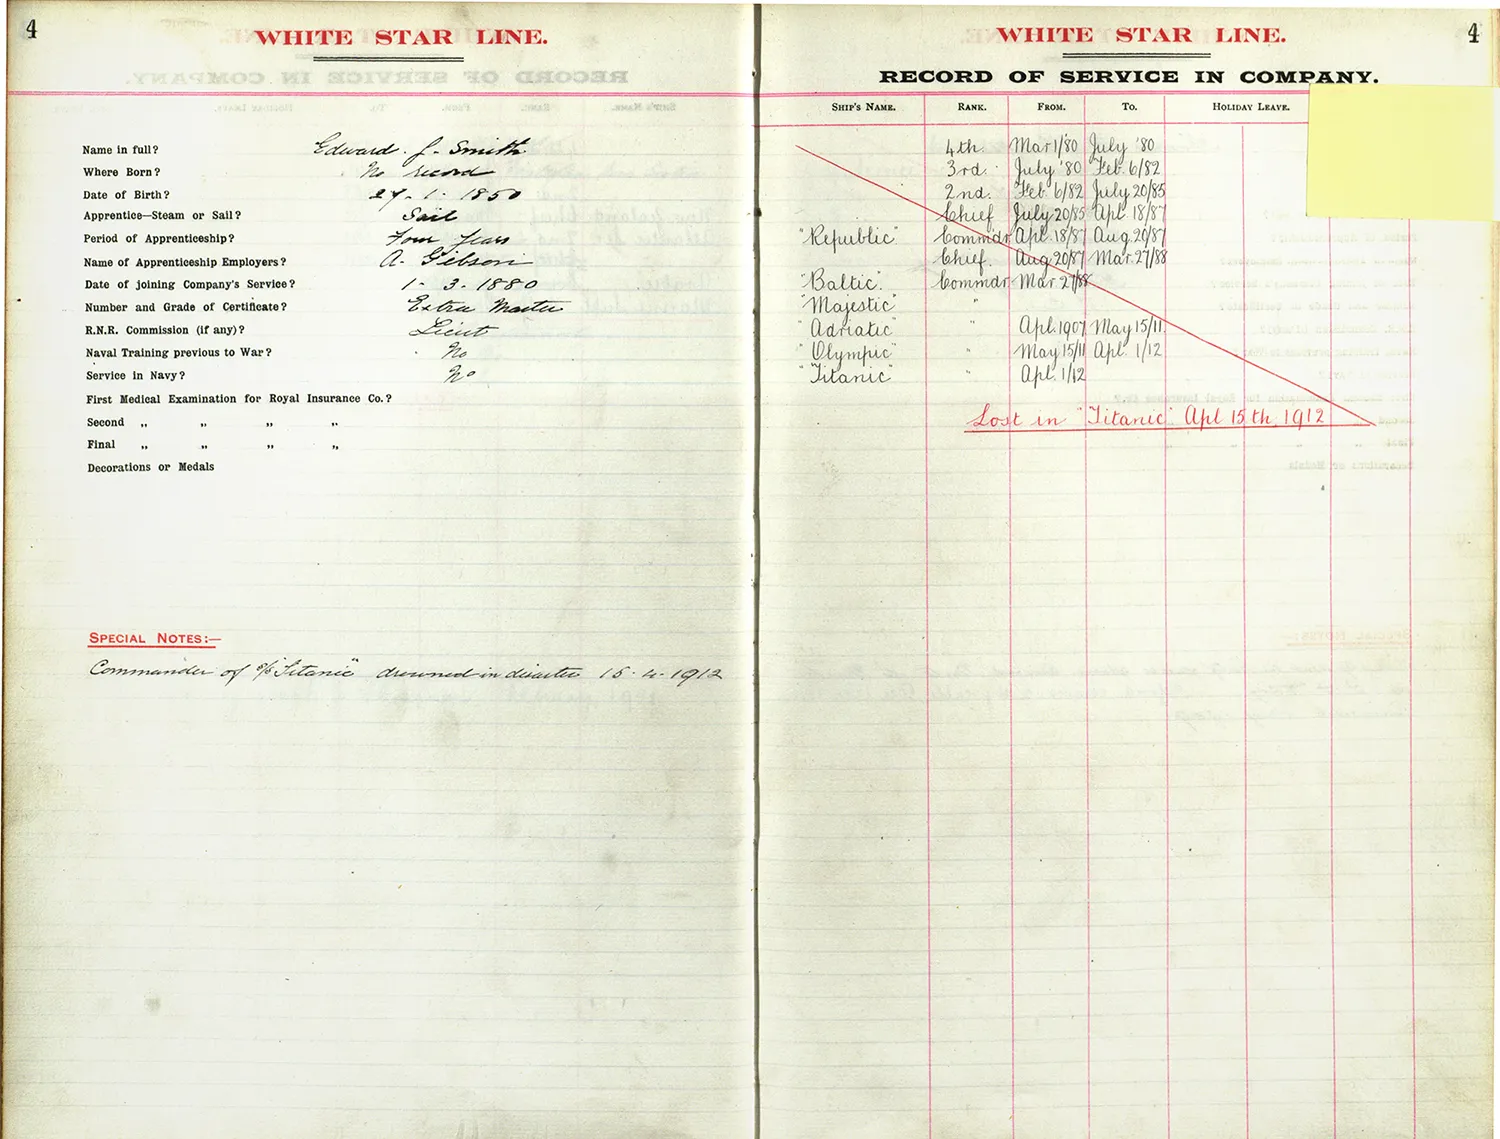 4
WHITE STAR LINE.
Name in full? Edward. J. Smith
Where Born? No record
Date of Birth? 27. 1. 1850
Apprentice—Steam or Sail? Sail
Period of Apprenticeship? Four Years
Name of Apprenticeship Employers? A. Gibson
Date of joining Company's Service? 1. 3. 1880
Number and Grade of Certificate? Extra Master
R.N.R. Commission (if any)? Lieut
Naval Training previous to War? No
Service in Navy? No
First Medical Examination for Royal Insurance Co.?
Second „ „ „ „
Final „ „ „ „
Decorations or Medals
SPECIAL NOTES:—
Commander of s/s "Titanic" drowned in disaster 15. 4. 1912
4
WHITE STAR LINE.
RECORD OF SERVICE IN COMPANY.
SHIP'S NAME. RANK. FROM. TO. HOLIDAY LEAVE.
4th. Mar 1/80 July '80
3rd. July '80 Feb. 6/82
2nd. Feb. 6/82 July 20/85
Chief July 20/85 Apl. 18/87
"Republic" Commdr Apl. 18/87 Aug. 20/87
Chief. Aug 20/87 Mar. 27/88
"Baltic" Commdr Mar. 27/88
"Majestic" "
"Adriatic" " Apl. 1907 May 15/11.
"Olympic" " May 15/11 Apl. 1/12
"Titanic" " Apl. 1/12
Lost in "Titanic" Apl 15th, 1912